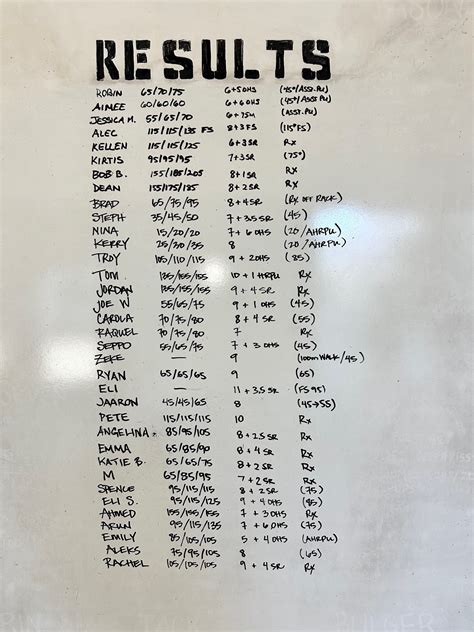 RESULTS
ROBIN 65/70/75 6+5OHS (45#/ASST.PU)
AIMEE 60/60/60 6+6OHS (45#/ASST.PU)
JESSICA M. 55/65/70 (ASST.PU)
ALEC 115/115/135 FS 8+3FS (115#FS)
KELLEN 115/115/125 6+3SR RX
KIRTIS 95/95/95 7+3SR (75#)
BOB B. 155/185/205 8+1SR RX
DEAN 155/175/185 8+2SR RX
BRAD 65/75/95 8+4SR (RX OFF RACK)
STEPH 35/45/50 7+3.5SR (45)
NINA 15/20/20 7+6OHS (20/AHRPU)
KERRY 25/30/35 8 (20/AHRPU)
TROY 105/110/115 9+2OHS (85)
TOM 135/155/155 10+1HRPU RX
JORDAN 135/155/155 9+4SR RX
JOE W 55/65/75 9+1OHS (45)
CAROLA 70/75/80 8+4SR (55)
RAQUEL 70/75/80 7 RX
SEPPO 55/65/75 7+3OHS (45)
ZEKE — 9 (100m WALK/45)
RYAN 65/65/65 9 (65)
ELI — 11+3.5SR (FS95)
JAARON 45/45/65 8 (45→55)
PETE 115/115/115 10 RX
ANGELINA 85/95/105 8+2.5SR RX
EMMA 65/85/90 8+4SR RX
KATIE B. 65/65/75 8+2SR RX
M 65/85/95 7+2SR RX
SPENCE 95/115/115 8+2SR (75)
ELI S. 95/115/125 9+4OHS (85)
AHMED 155/155/155 7+3OHS RX
ARUN 95/115/135 7+6OHS (75)
EMILY 85/105/105 5+4OHS (AHRPU)
ALEKS 75/95/105 8 (65)
RACHEL 105/105/105 9+4SR RX